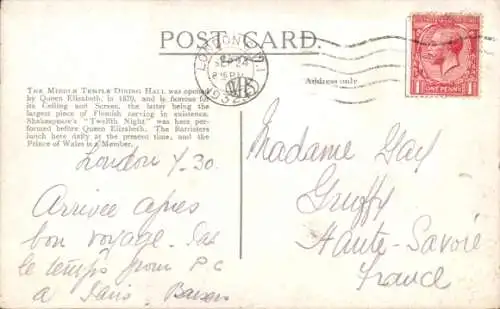 POST CARD.
LONDON W.1
SEP 24
8 15 PM
1932
Address only
ONE PENNY
THE MIDDLE TEMPLE DINING HALL was opened
by Queen Elizabeth, in 1570, and is famous for
its Ceiling and Screen, the latter being the
largest piece of Flemish carving in existence.
Shakespeare's "Twelfth Night" was here per-
formed before Queen Elizabeth. The Barristers
lunch here daily at the present time, and the
Prince of Wales is a Member.
London 7.30
Arrivée après
bon voyage. Pas
le temps pour P C
à Paris. Baisers
Madame Gay
Gruffy
Haute-Savoie
France